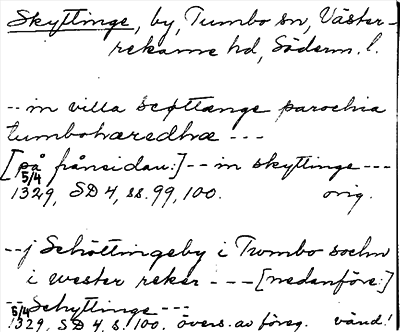 Skyttinge, by, Tumbo sn, Väster-
rekarne hd, Söderm. l.
-- in villa scøttænge parochia
tumbohæredhæ ---
[på frånsidan:] -- in skyttinge ---
5/4
1329, SD 4, ss. 99, 100. orig.
-- j Schöttingeby i Tumbo sochn
i wester reker --- [nedanföre:]
-- Schyttinge ---
5/4
1329, SD 4, s. 100. övers. av föreg. vänd!